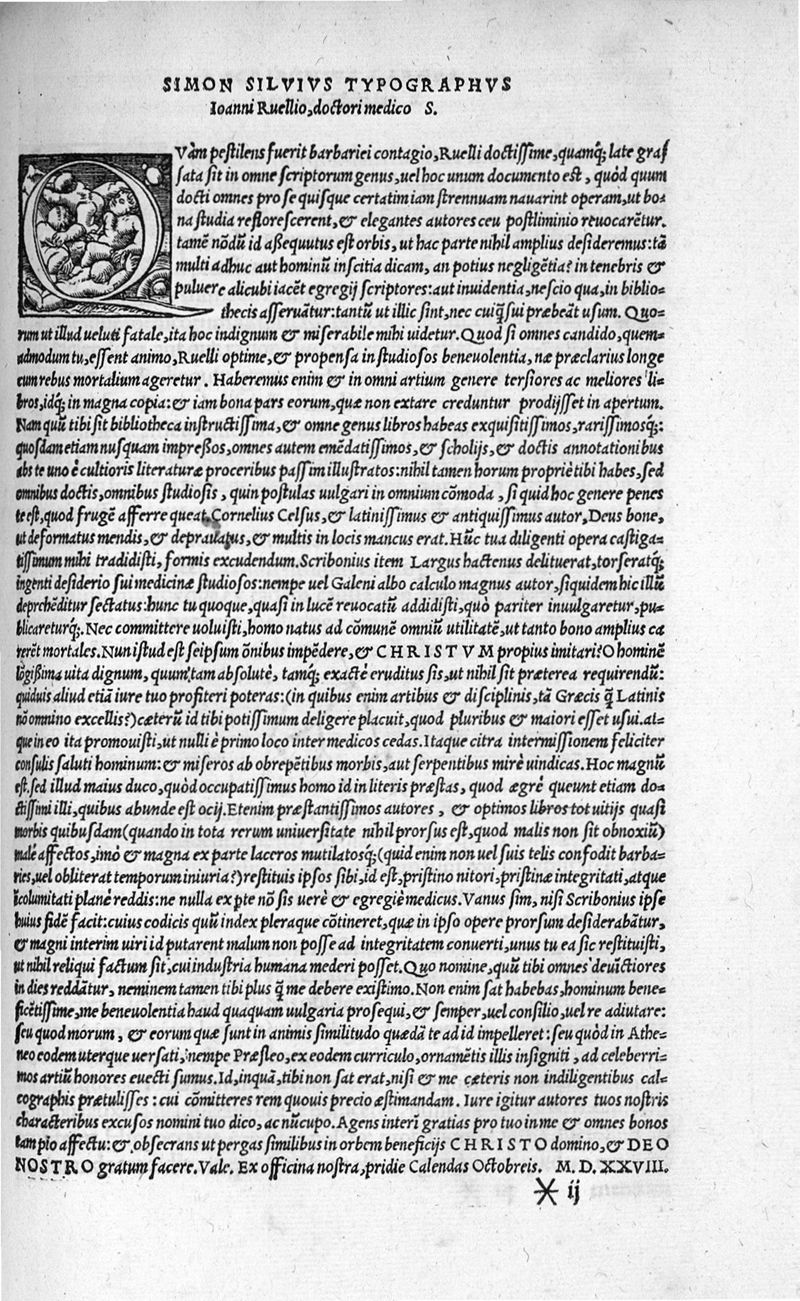 SIMON SILVIVS TYPOGRAPHVS
Ioanni Ruellio, doctori medico S.
QVàm pestilens fuerit barbariei contagio, Ruelli doctissime, quamq; late graſ
sata sit in omne scriptorum genus, uel hoc unum documento est, quòd quum
docti omnes pro se quisque certatim iam strennuam nauarint operam, ut bo=
na studia reflorescerent, & elegantes autores ceu postliminio reuocarẽtur.
tamẽ nõdũ id aßequutus est orbis, ut hac parte nihil amplius desideremus: tã
multi adhuc aut hominũ inscitia dicam, an potius negligẽtia? in tenebris &
puluere alicubi iacẽt egregij scriptores: aut inuidentia, nescio qua, in biblio=
thecis asseruãtur: tantũ ut illic sint, nec cuiq̃ sui præbeãt usum. Quo=
rum ut illud ueluti fatale, ita hoc indignum & miserabile mihi uidetur. Quod si omnes candido, quem=
admodum tu, essent animo, Ruelli optime, & propensa in studiosos beneuolentia, næ præclarius longe
cum rebus mortalium ageretur. Haberemus enim & in omni artium genere tersiores ac meliores li=
bros, idq; in magna copia: & iam bona pars eorum, quæ non extare creduntur prodijsset in apertum.
Nam quũ tibi sit bibliotheca instructissima, & omne genus libros habeas exquisitissimos, rarissimosq;:
quosdam etiam nusquam impreßos, omnes autem emẽdatissimos, & scholijs, & doctis annotationibus
abs te uno è cultioris literaturæ proceribus passim illustratos: nihil tamen horum propriè tibi habes, sed
omnibus doctis, omnibus studiosis, quin postulas uulgari in omnium cõmoda, si quid hoc genere penes
te est, quod frugẽ afferre queat. Cornelius Celsus, & latinissimus & antiquissimus autor, Deus bone,
ut deformatus mendis, & deprauatus, & multis in locis mancus erat. Hũc tua diligenti opera castiga=
tissimum mihi tradidisti, formis excudendum. Scribonius item Largus hactenus delituerat, torseratq;
ingenti desiderio sui medicinæ studiosos: nempe uel Galeni albo calculo magnus autor, siquidem hic illũ
deprehẽditur sectatus: hunc tu quoque, quasi in lucẽ reuocatũ addidisti, quò pariter inuulgaretur, pu=
blicareturq;. Nec committere uoluisti, homo natus ad cõmunẽ omniũ utilitatẽ, ut tanto bono amplius ca
rerẽt mortales. Nun istud est seipsum õnibus impẽdere, & CHRISTVM propius imitari? O hominẽ
lõgißima uita dignum, quum tam absolutè, tamq; exactè eruditus sis, ut nihil sit præterea requirendũ:
quiduis aliud etiã iure tuo profiteri poteras: (in quibus enim artibus & disciplinis, tã Græcis q̃ Latinis
nõ omnino excellis?) cæterũ id tibi potissimum deligere placuit, quod pluribus & maiori esset usui. at=
que in eo ita promouisti, ut nulli è primo loco inter medicos cedas. Itaque citra intermissionem feliciter
consulis saluti hominum: & miseros ab obrepẽtibus morbis, aut serpentibus mirè uindicas. Hoc magnũ
est. sed illud maius duco, quòd occupatissimus homo id in literis præstas, quod ægrè queunt etiam do=
ctissimi illi, quibus abunde est ocij. Etenim præstantissimos autores, & optimos libros tot uitijs quasi
morbis quibusdam (quando in tota rerum uniuersitate nihil prorsus est, quod malis non sit obnoxiũ)
malè affectos, imò & magna ex parte laceros mutilatosq; (quid enim non uel suis telis confodit barba=
ries, uel obliterat temporum iniuria?) restituis ipsos sibi, id est, pristino nitori, pristinæ integritati, atque
ĩcolumitati planè reddis: ne nulla ex pte nõ sis uerè & egregiè medicus. Vanus sim, nisi Scribonius ipse
huius fidẽ facit: cuius codicis quũ index pleraque cõtineret, quæ in ipso opere prorsum desiderabãtur,
& magni interim uiri id putarent malum non posse ad integritatem conuerti, unus tu ea sic restituisti,
ut nihil reliqui factum sit, cui industria humana mederi posset. Quo nomine, quũ tibi omnes deuĩctiores
in dies reddãtur, neminem tamen tibi plus q̃ me debere existimo. Non enim sat habebas, hominum bene=
ficẽtissime, me beneuolentia haud quaquam uulgaria prosequi, & semper, uel consilio, uel re adiutare:
seu quod morum, & eorum quæ sunt in animis similitudo quædã te ad id impelleret: seu quòd in Athe=
neo eodem uterque uersati, nempe Præsleo, ex eodem curriculo, ornamẽtis illis insigniti, ad celeberri=
mos artiũ honores euecti sumus. Id, inquã, tibi non sat erat, nisi & me cæteris non indiligentibus cal=
cographis prætulisses: cui cõmitteres rem quouis precio æstimandam. Iure igitur autores tuos nostris
characteribus excusos nomini tuo dico, ac nũcupo. Agens interĩ gratias pro tuo in me & omnes bonos
tam pio affectu: & obsecrans ut pergas similibus in orbem beneficijs CHRISTO domino, & DEO
NOSTRO gratum facere. Vale. Ex officina nostra, pridie Calendas Octobreis. M. D. XXVIII.
* ij